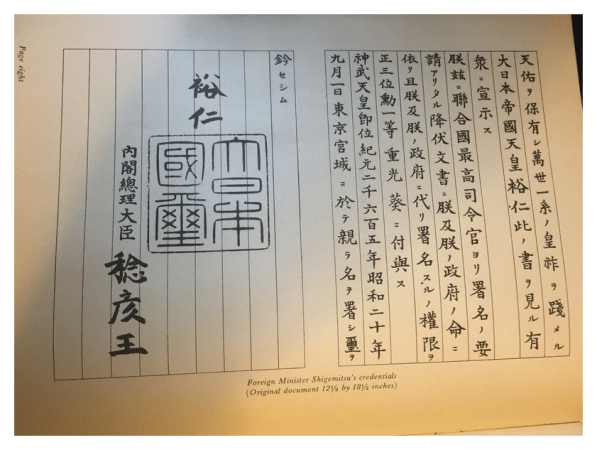 天佑ヲ保有シ萬世一系ノ皇祚ヲ踐メル
大日本帝國天皇裕仁此ノ書ヲ見ル有
衆ニ宣示ス
朕玆ニ聯合國最高司令官ヨリ署名ノ要
請アリタル降伏文書ニ朕及朕ノ政府ノ命ニ
依リ且朕及朕ノ政府ニ代リ署名スルノ權限ヲ
正三位勳一等重光葵ニ付與ス
神武天皇即位紀元二千六百五年昭和二十年
九月一日東京宮城ニ於テ親ラ名ヲ署シ璽ヲ
鈐セシム
裕仁
大日本國璽
內閣總理大臣 稔彥王
Foreign Minister Shigemitsu's credentials
(Original document 12½ by 18½ inches)
Page eight